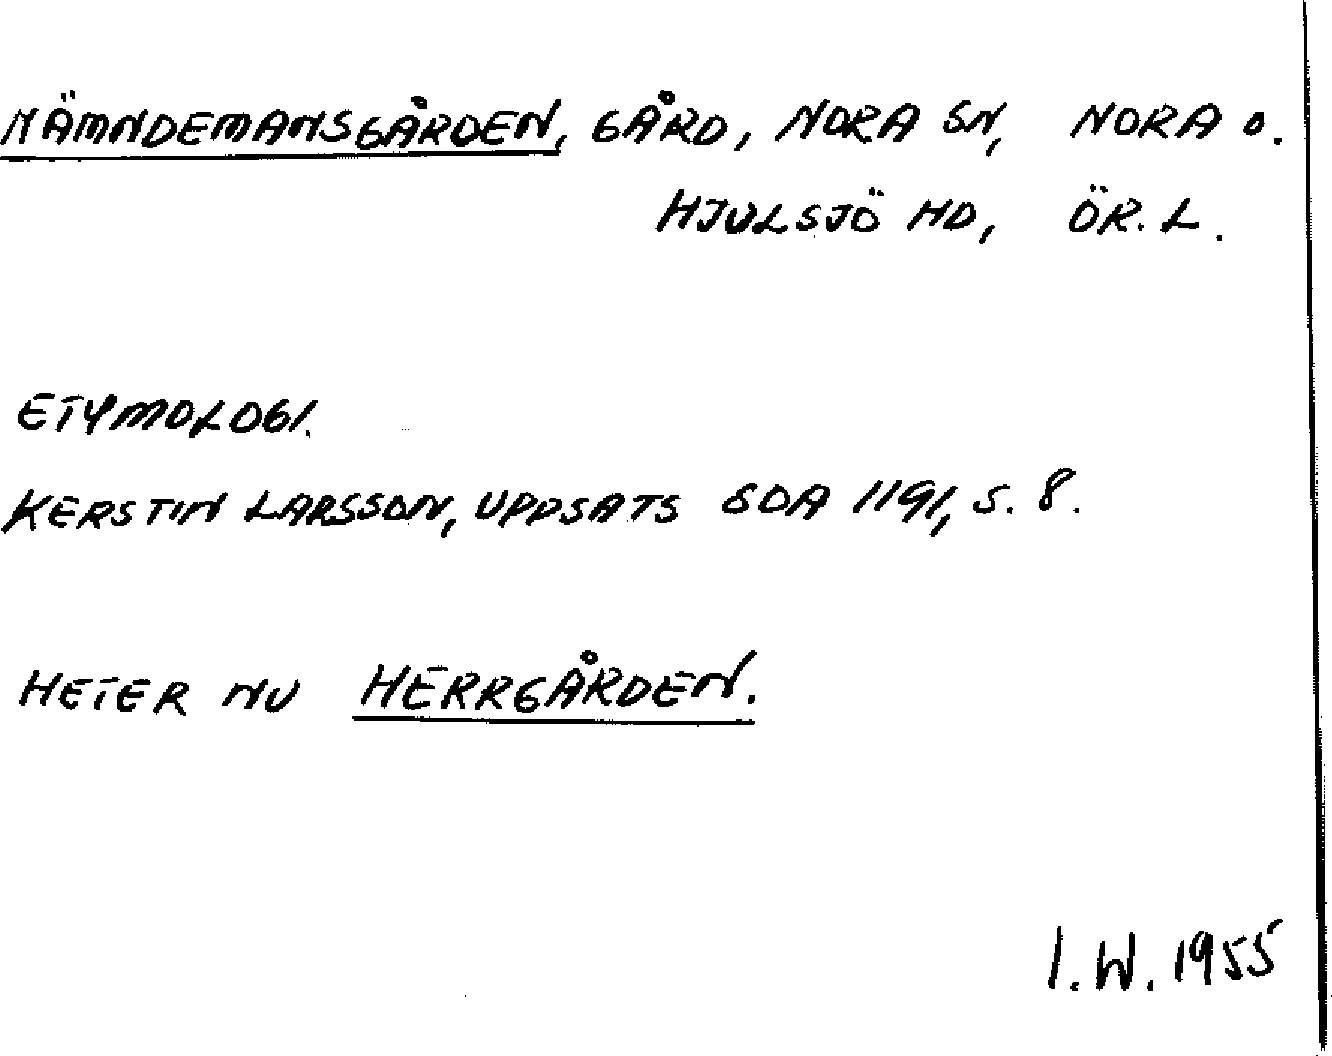 NÄMNDEMANSGÅRDEN, GÅRD, NORA SN, NORA O.
HJULSJÖ HD, ÖR. L.
ETYMOLOGI.
KERSTIN LARSSON, UPPSATS SOA 1191, S. 8.
HETER NU HERRGÅRDEN.
I. W. 1955